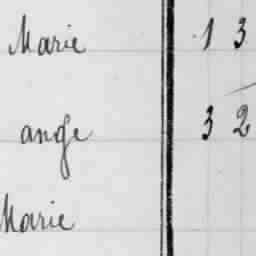 Marie 13
ange 32
Marie